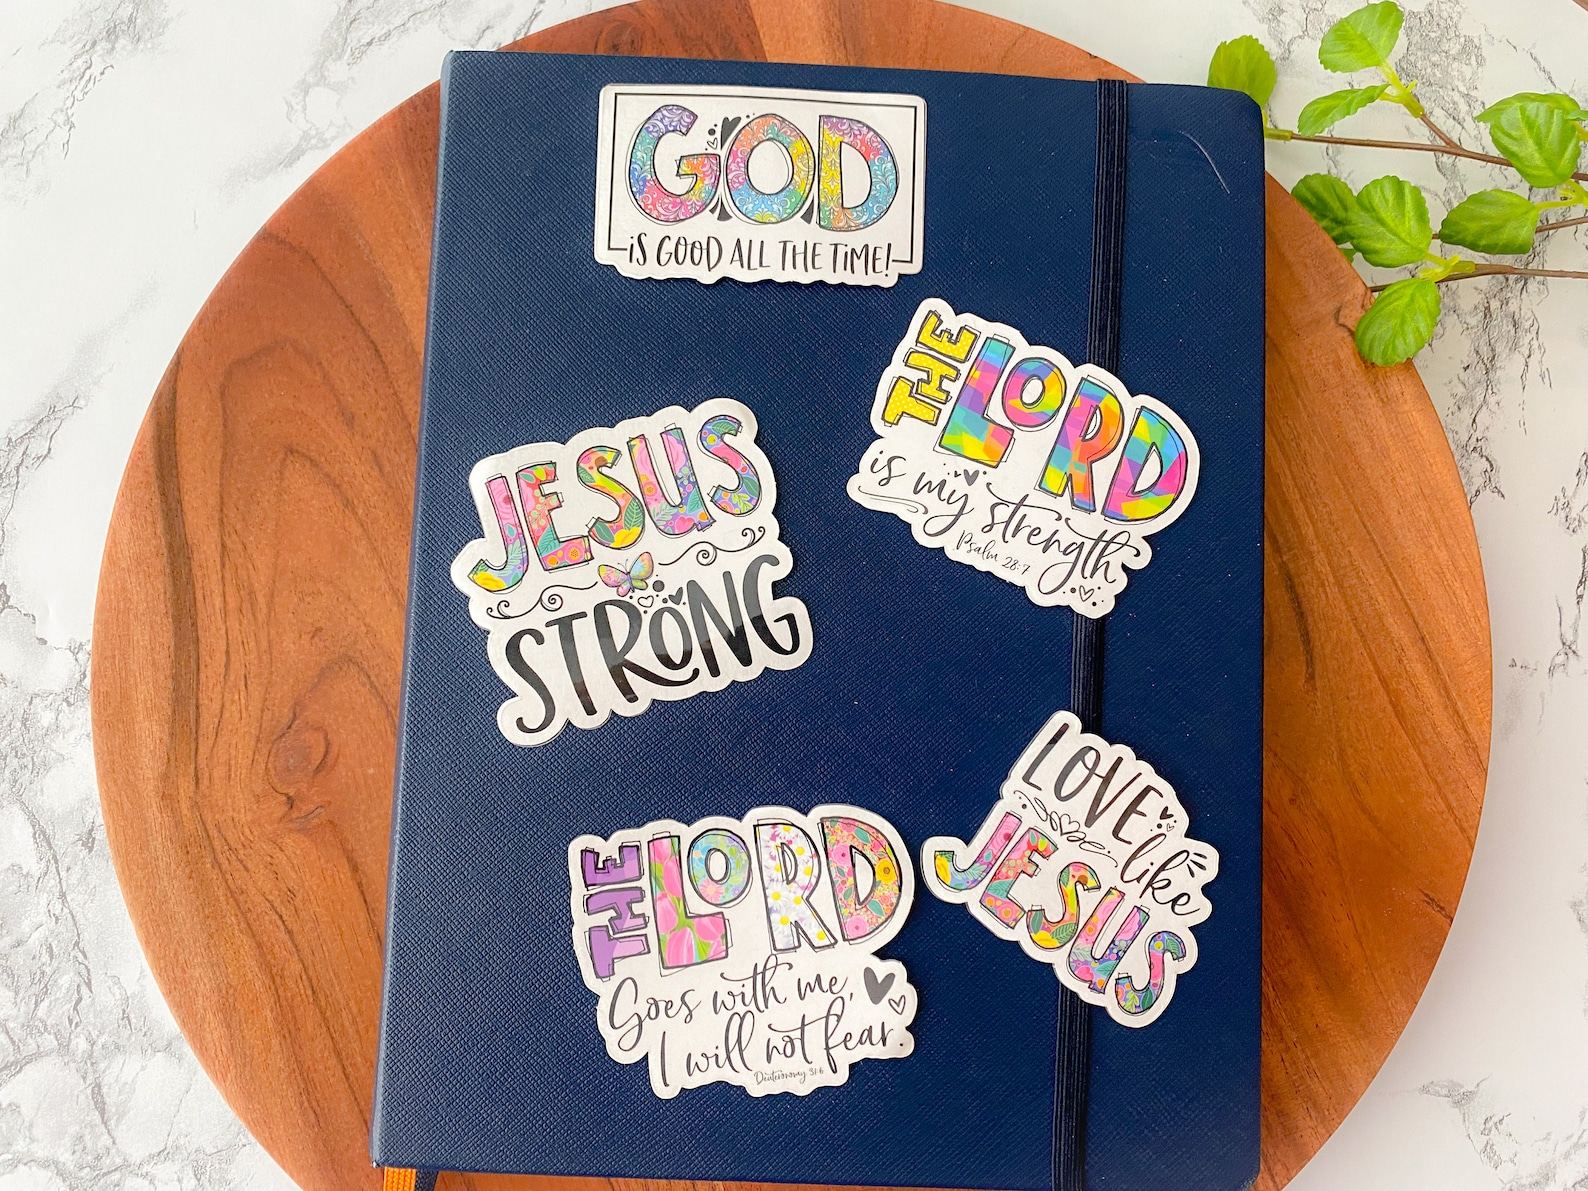 GOD
is GOOD ALL THE TiME!
THE LORD
is my strength
Psalm 28:7
JESUS
STRONG
LOVE
like
JESUS
THE LORD
Goes with me,
I will not fear.
Deuteronomy 31:6